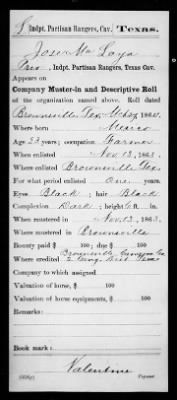 Indpt. Partisan Rangers, Cav. Texas.
Jose Ma Loya
Priv., Indpt. Partisan Rangers, Texas Cav.
Appears on
Company Muster-in and Descriptive Roll
of the organization named above. Roll dated
Brownsville, Tex,
Where born Mexico
Age 33 years; occupation Farmer
When enlisted Nov 13, 1863.
Where enlisted Brownsville Tex
For what period enlisted One years.
Eyes Black; hair Black
Complexion Dark; height ft. in.
When mustered in Nov 13, 1863.
Where mustered in Brownsville
Bounty paid $ 100; due $ 100
Brownsville Cameron Co
Where credited 2 Cong. Dist Texas
Company to which assigned
Valuation of horse, $ 100
Valuation of horse equipments, $ 100
Remarks:
Book mark:
Valentine
Copyist.